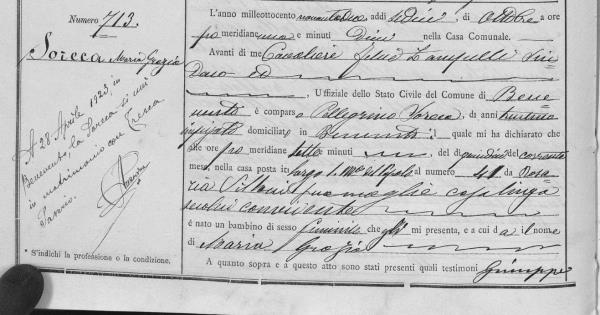 Numero 713.
Sorcca Maria Grazia
A 28 Aprile 1923, in
Benevento, la Sorcca si unì
in matrimonio con Cresca
* S'indichi la professione o la condizione.
L'anno milleottocento addì sedici, di Ottobre a ore
pomeridiane una e minuti dieci nella Casa Comunale.
Avanti di me Cavaliere Zampelli Sin
daco ed
Uffiziale dello Stato Civile del Comune di Bene
vento è comparso Pellegrino di anni trentuno
impiegato domiciliato in Benevento il quale mi ha dichiarato che
alle ore pomeridiane sette minuti del dì quindici del corrente
mese, nella casa posta in largo di al numero 41 da Rosa
ria Villani sua moglie casalinga
seco lui convivente
è nato un bambino di sesso feminile che egli mi presenta, e a cui dà il nome
di Maria Grazia
A quanto sopra e a questo atto sono stati presenti quali testimoni Giuseppe